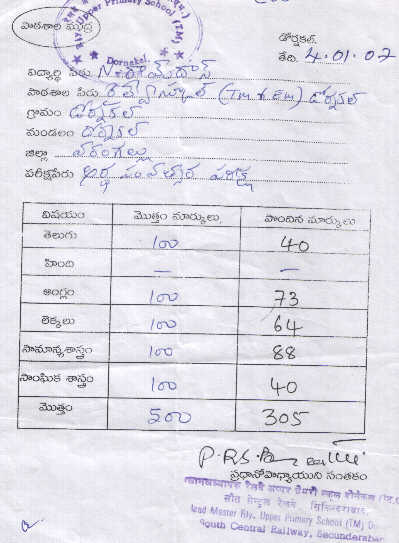 పాఠశాల ముద్ర
Rly. Upper Primary School (TM)
Dornakal.
డోర్నకల్.
తేది. 4.01.07
విద్యార్థి పేరు
పాఠశాల పేరు (TM & EM) డోర్నకల్
గ్రామం డోర్నకల్
మండలం డోర్నకల్
జిల్లా వరంగల్లు
పరీక్షపేరు అర్థ సంవత్సర పరీక్ష
విషయం మొత్తం మార్కులు. పొందిన మార్కులు
తెలుగు 100 40
హింది — —
ఆంగ్లం 100 73
లెక్కలు 100 64
సామాన్యశాస్త్రం 100 88
సాంఘిక శాస్త్రం 100 40
మొత్తం 500 305
ప్రధానోపాధ్యాయుని సంతకం
Head Master Rly. Upper Primary School (TM)
South Central Railway, Secunderabad